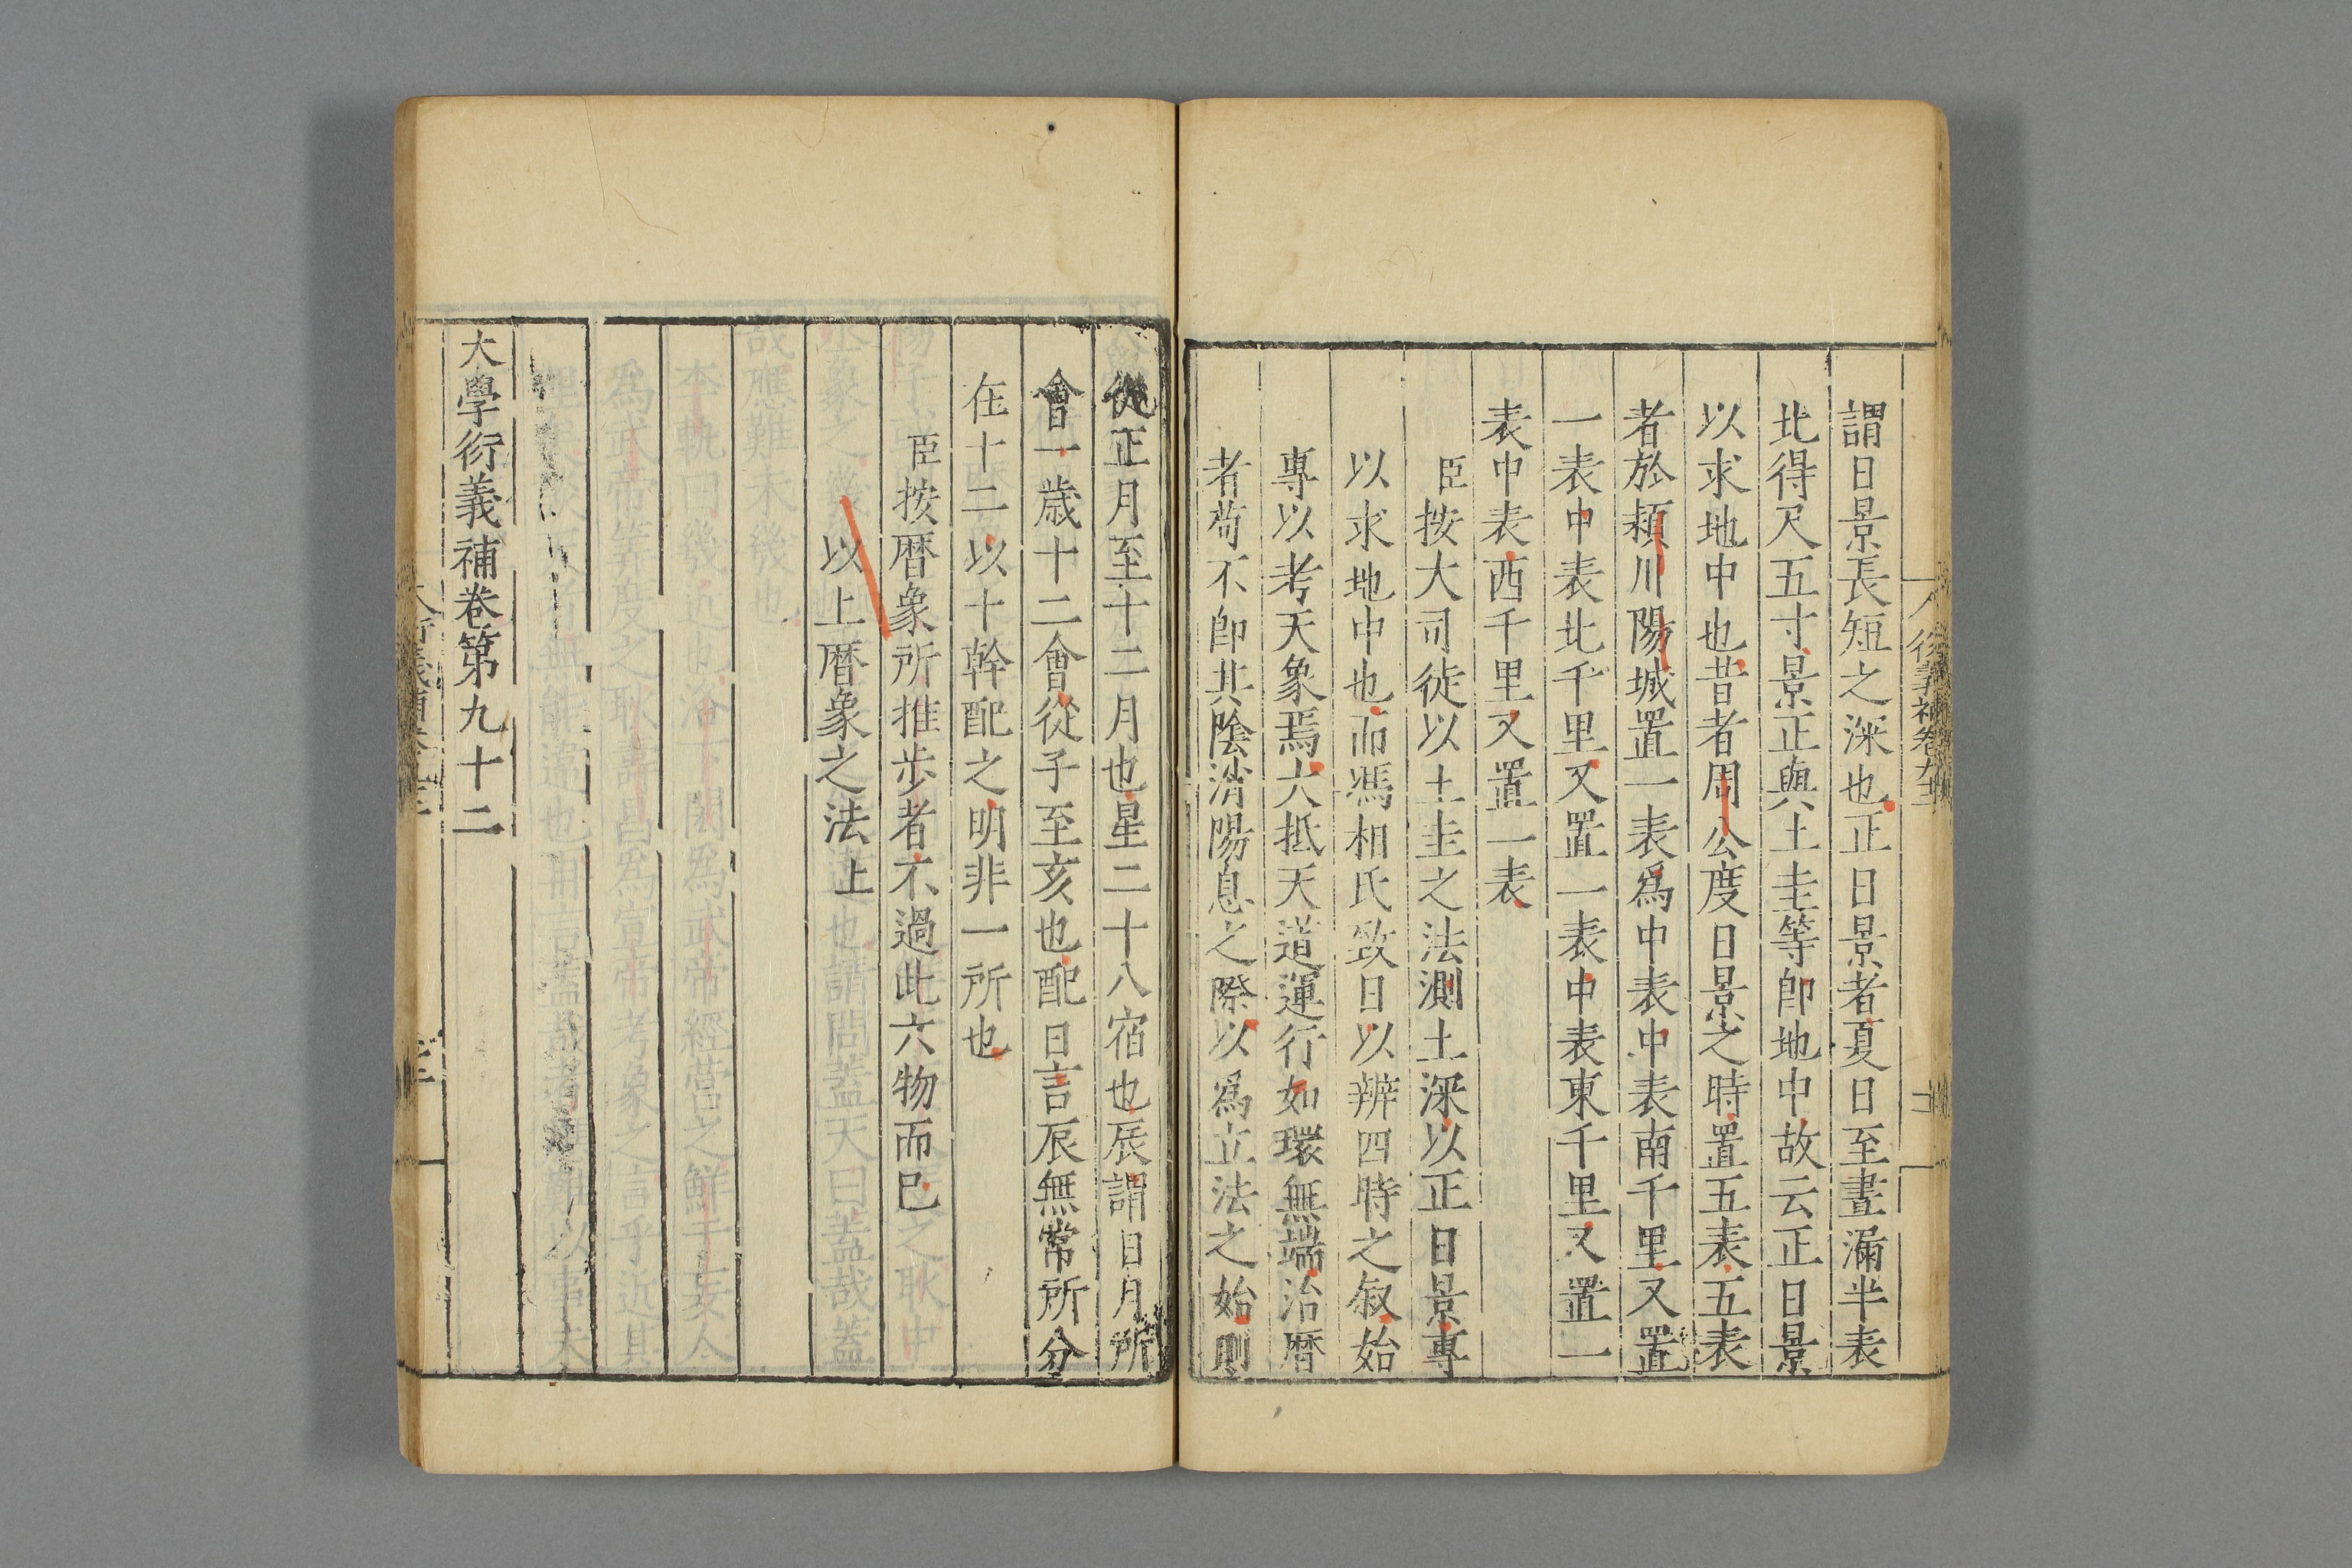 謂日景長短之深也正日景者夏日至晝漏半表
北得尺五寸景正與土圭等卽地中故云正日景
以求地中也昔者周公度日景之時置五表五表
者於潁川陽城置一表爲中表中表南千里又置
一表中表北千里又置一表中表東千里又置一
表中表西千里又置一表
臣按大司徒以土圭之法測土深以正日景專
以求地中也而馮相氏致日以辨四時之叙始
專以考天象焉大抵天道運行如環無端治曆
者苟不卽其陰消陽息之際以爲立法之始則
從正月至十二月也星二十八宿也辰謂日月所
會一歲十二會從子至亥也配日言辰無常所分
在十二以十幹配之明非一所也
臣按曆象所推步者不過此六物而已
以上曆象之法上
大學衍義補卷第九十二